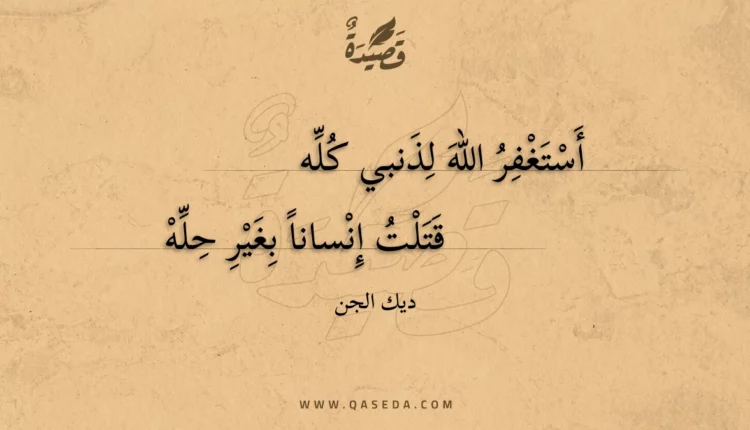 قَصِيْدَةٌ
أَسْتَغْفِرُ اللهَ لِذَنبي كُلِّه
قَتَلْتُ إِنْساناً بِغَيْرِ حِلِّهْ
ديك الجن
WWW.QASEDA.COM